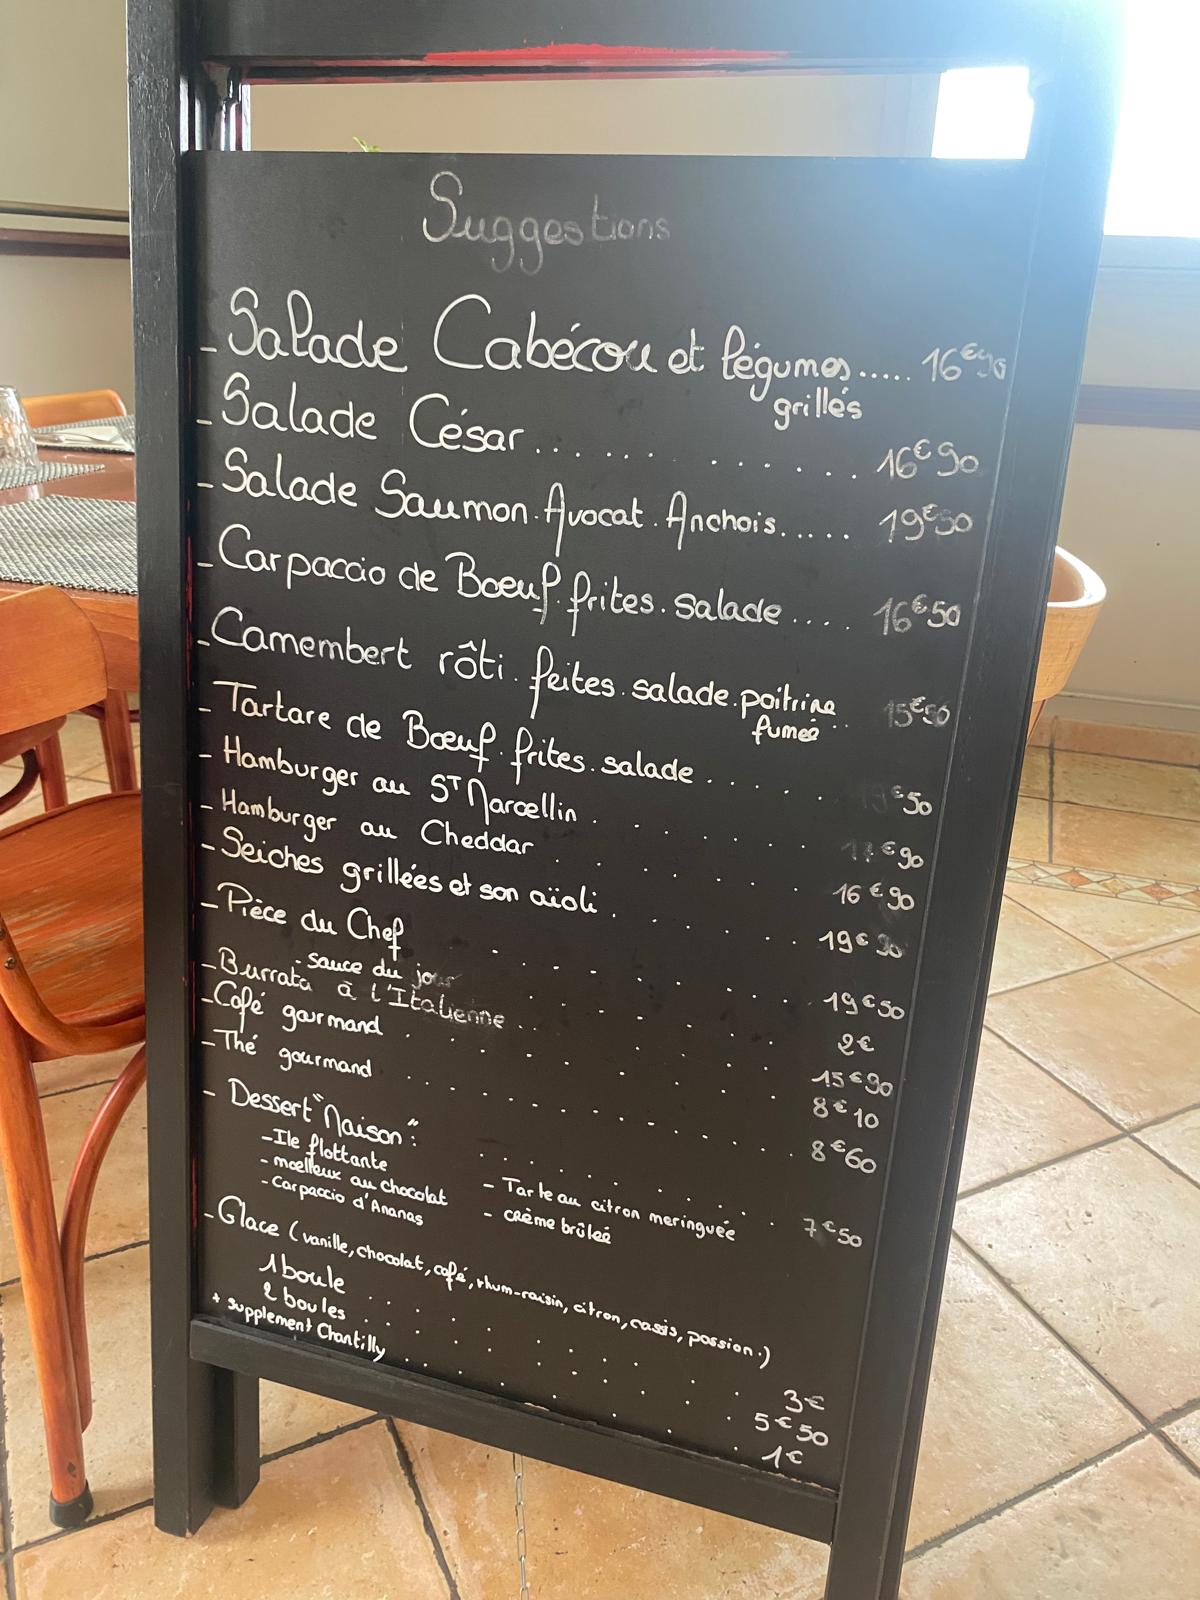 Suggestions
- Salade Cabécou et légumes ..... 16€90
grillés
- Salade César ......... 16€90
- Salade Saumon . Avocat . Anchois ..... 19€50
- Carpaccio de Boeuf . frites . salade .... 16€50
- Camembert rôti . frites . salade . poitrine .. 15€50
fumée
- Tartare de Boeuf . frites . salade ..... €50
- Hamburger au ST Marcellin ...... €90
- Hamburger au Cheddar ...... 16€90
- Seiches grillées et son aïoli ...... 19€90
- Pièce du Chef ........ 19€50
- sauce du jour ...... 2€
- Burrata à l'Italienne ....... 15€90
- Café gourmand ........ 8€10
- Thé gourmand ........ 8€60
- Dessert "Maison": ........ 7€50
- Ile flottante
- moelleux au chocolat
- Carpaccio d'Ananas
- Tarte au citron meringuée
- crème brûlée
- Glace (vanille, chocolat, café, rhum-raisin, citron, cassis, passion.)
1 boule ........ 3€
2 boules ........ 5€50
+ supplement Chantilly ........ 1€